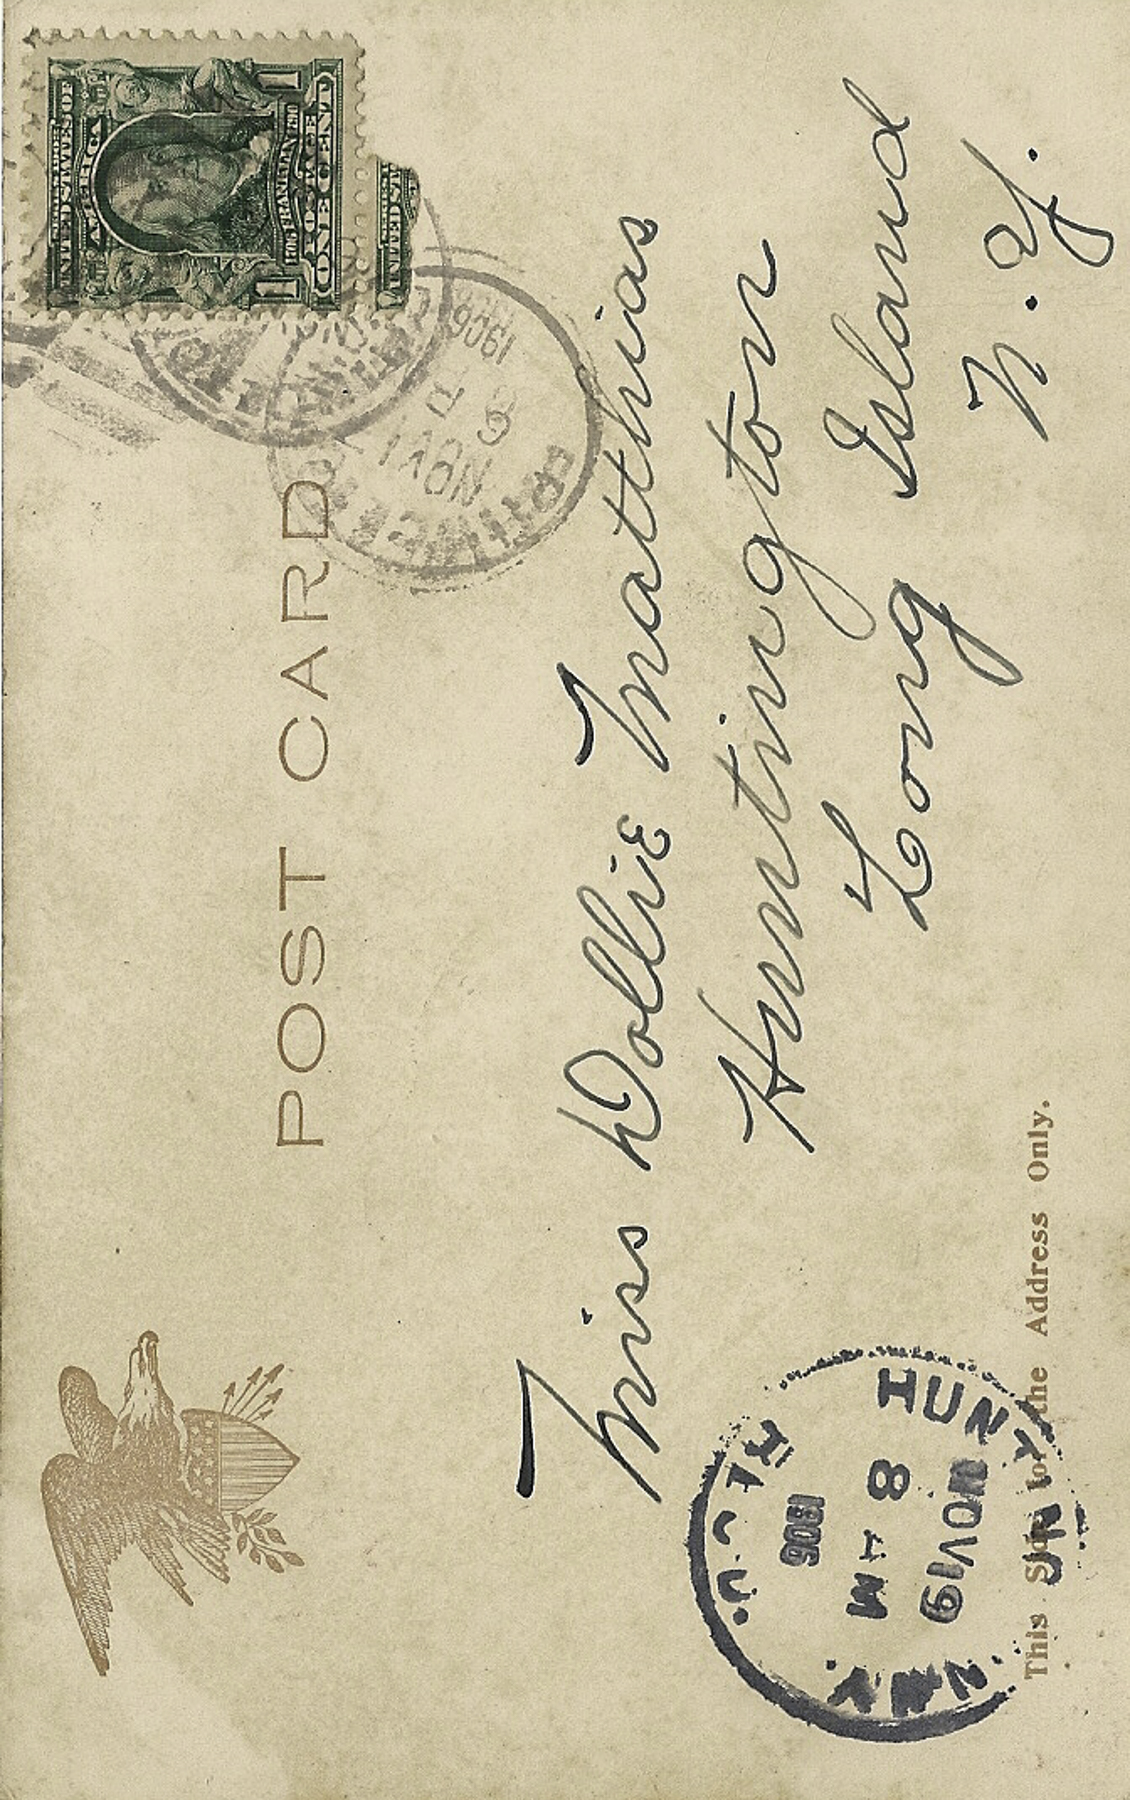 POST CARD
UNITED STATES OF
AMERICA
1 1
FRANKLIN
POSTAGE
ONE CENT
UNITED ST
NOV 1
6
1906
Miss Dollie Matthias
Huntington
Long Island
N. Y.
HUNT
NOV 19
8 AM
1906
N.Y.
REC'D.
This Side for the Address Only.